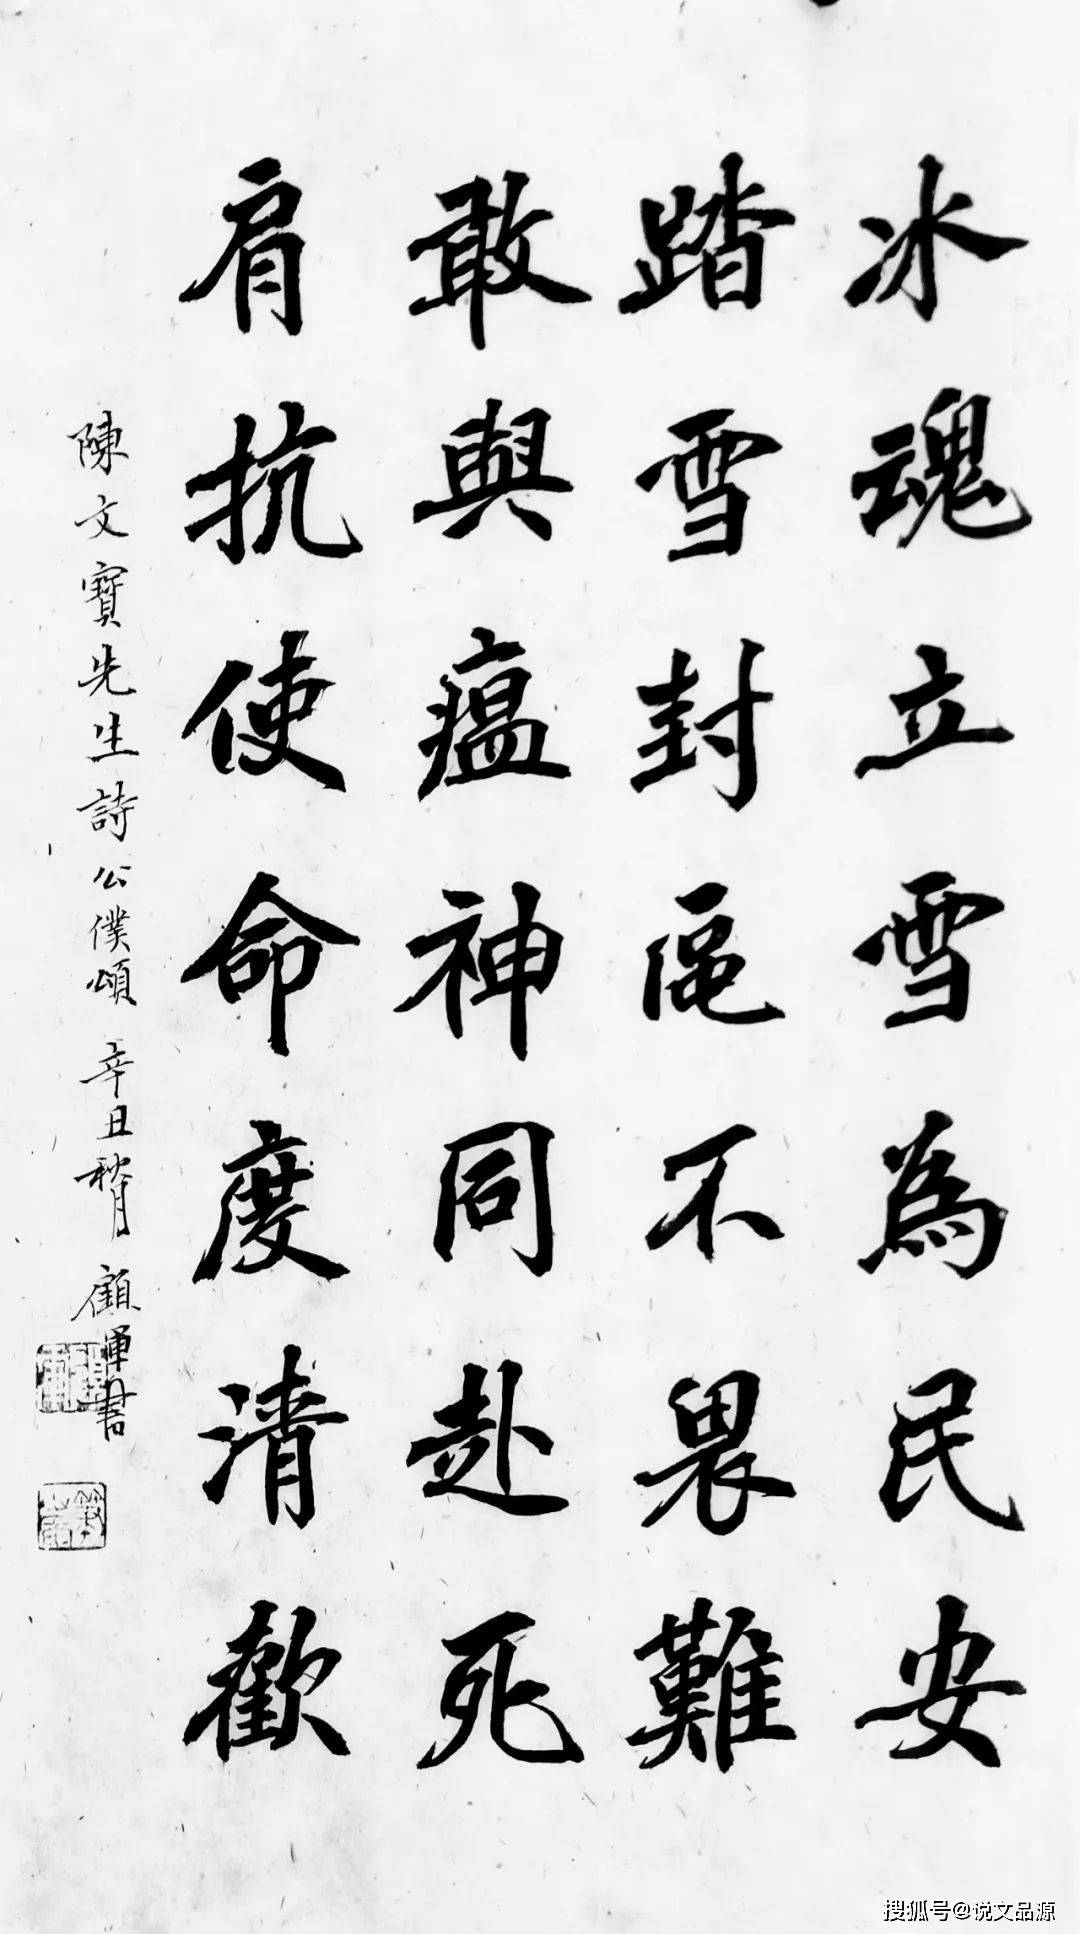 冰魂立雪為民安
踏雪封區不畏難
敢與瘟神同赴死
肩抗使命度清歡
陳文寶先生詩公僕頌 辛丑 顧運書
搜狐号@说文品源